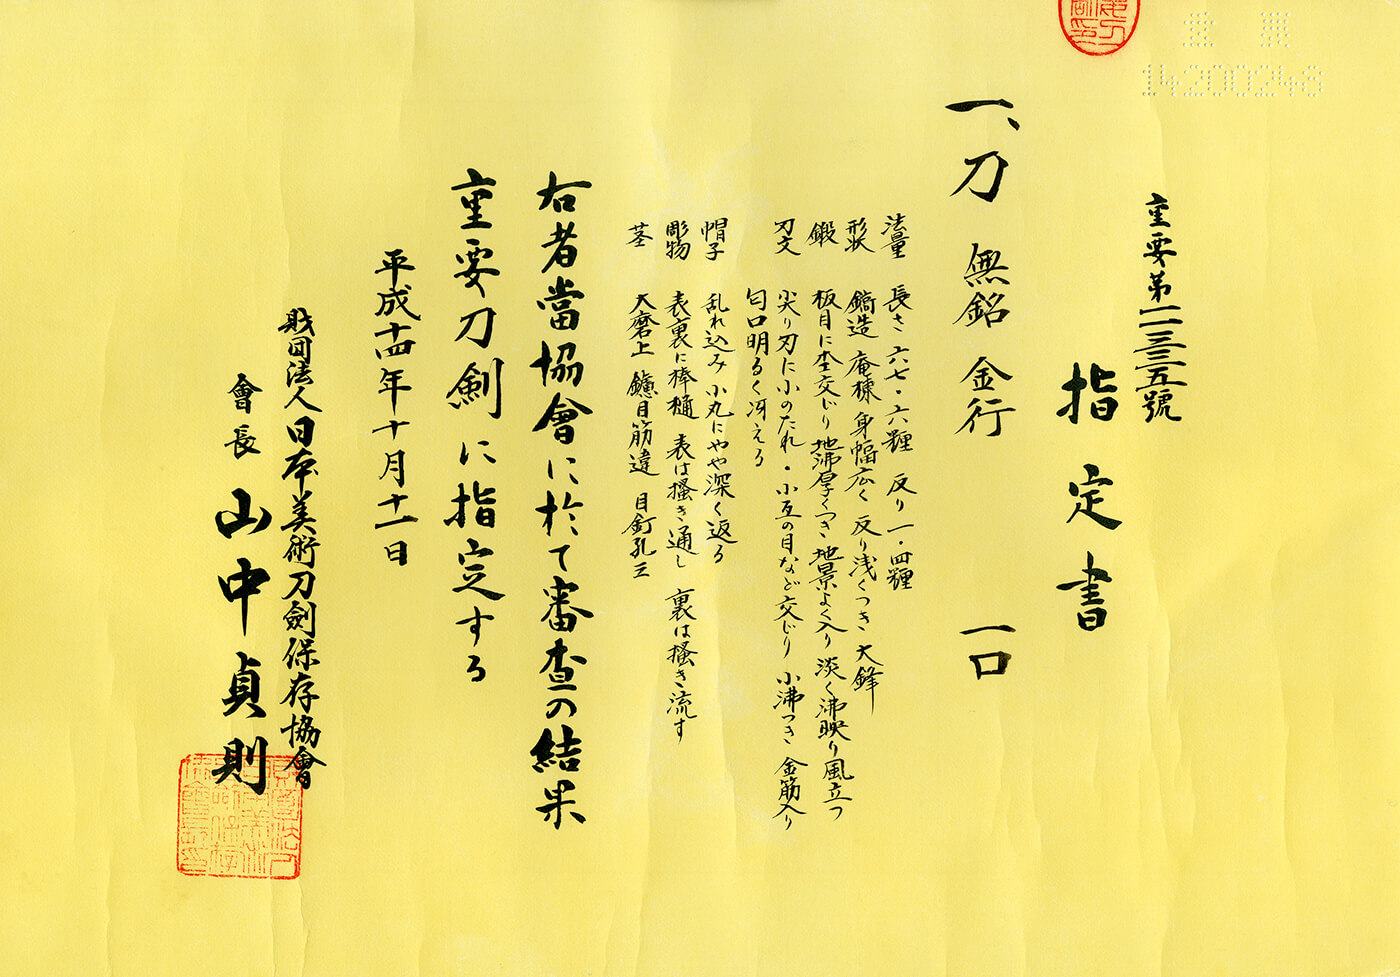 14200248
重要第一一三三五號
指定書
一、刀 無銘 金行 一口
法量 長さ 六七・六糎 反り 一・四糎
形状 鎬造 庵棟 身幅広く 反り浅くつき 大鋒
鍛 板目に杢交じり 地沸厚くつき 地景よく入り 淡く沸映り風立つ
刃文 尖り刃に小のたれ・小互の目など交じり 小沸つき 金筋入り
匂口明るく冴える
帽子 乱れ込み 小丸にやや深く返る
彫物 表裏に棒樋 表は掻き通し 裏は掻き流す
茎 大磨上 鑢目筋違 目釘孔三
右者當協會に於て審査の結果
重要刀剣に指定する
平成十四年十月十一日
財団法人日本美術刀劍保存協會
會長 山中貞則